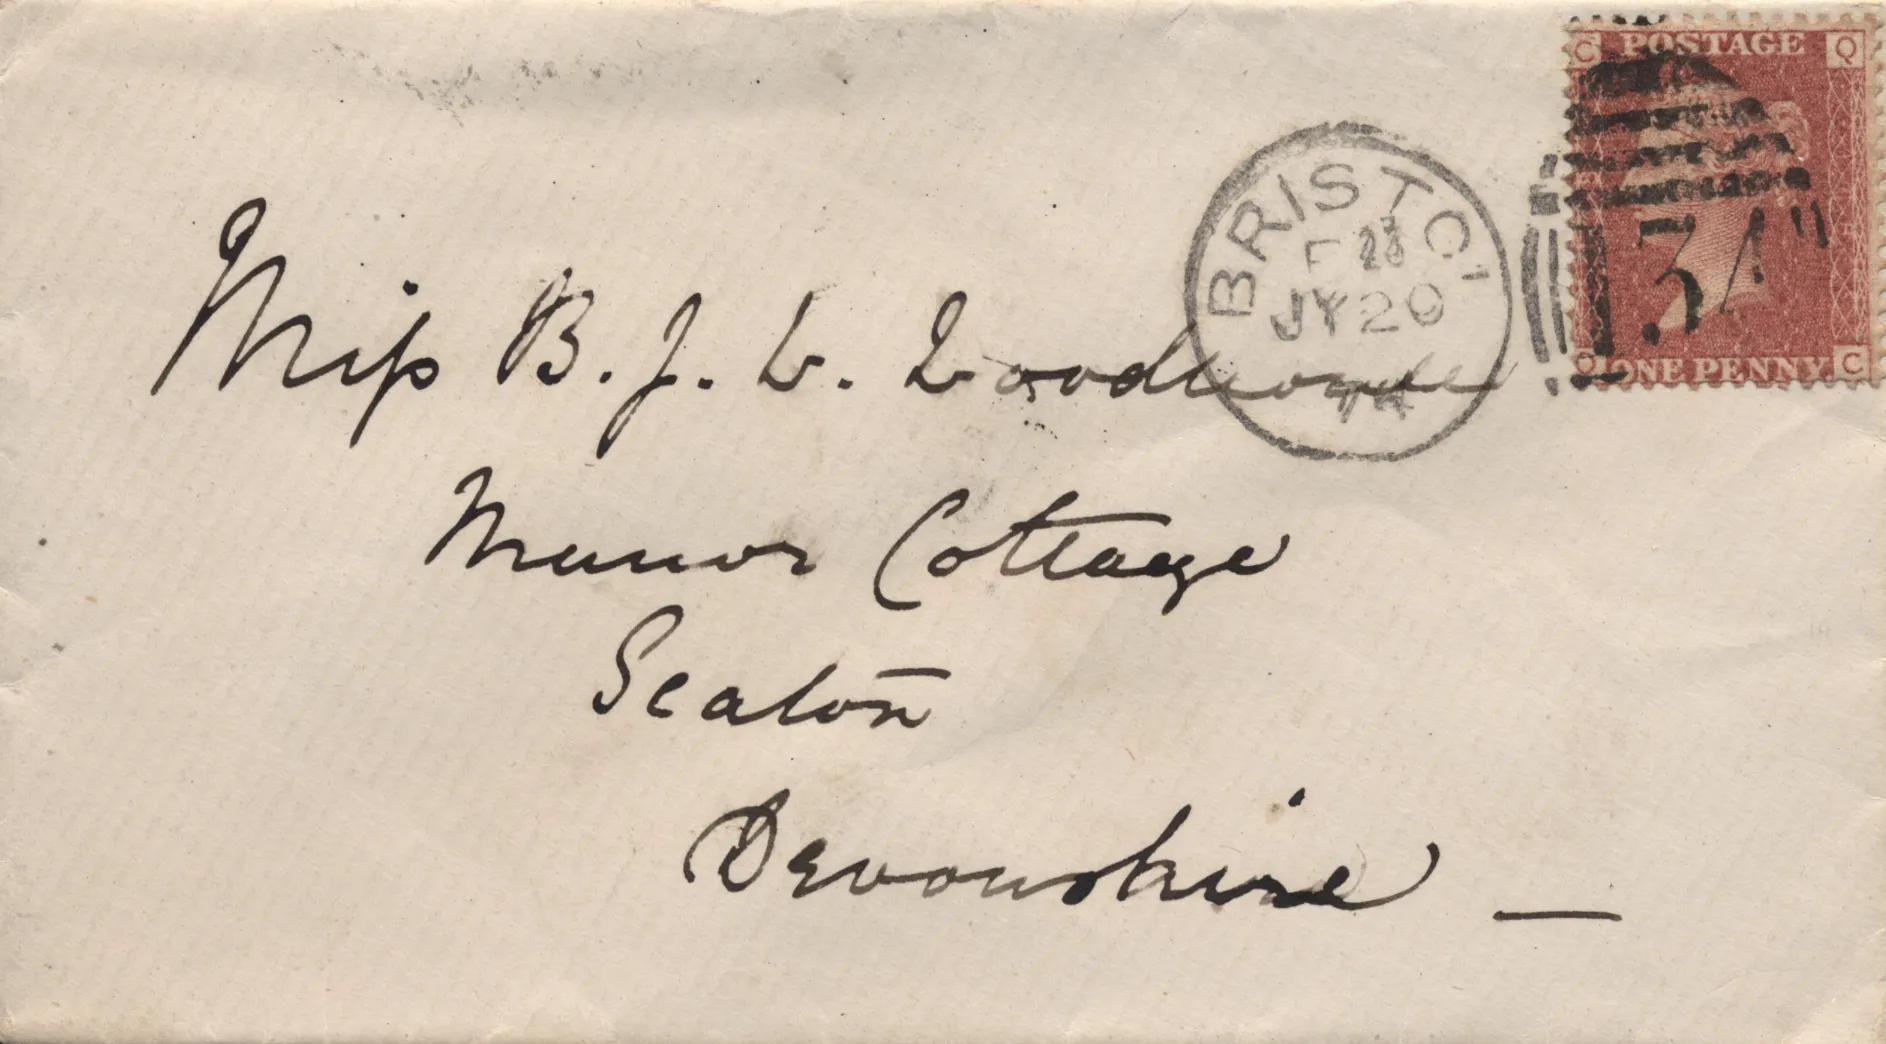 C POSTAGE Q
BRISTOL
F 23
JY 20
74
134
Q ONE PENNY C
Miss B. J. W. Woodhouse
Manor Cottage
Seaton
Devonshire —